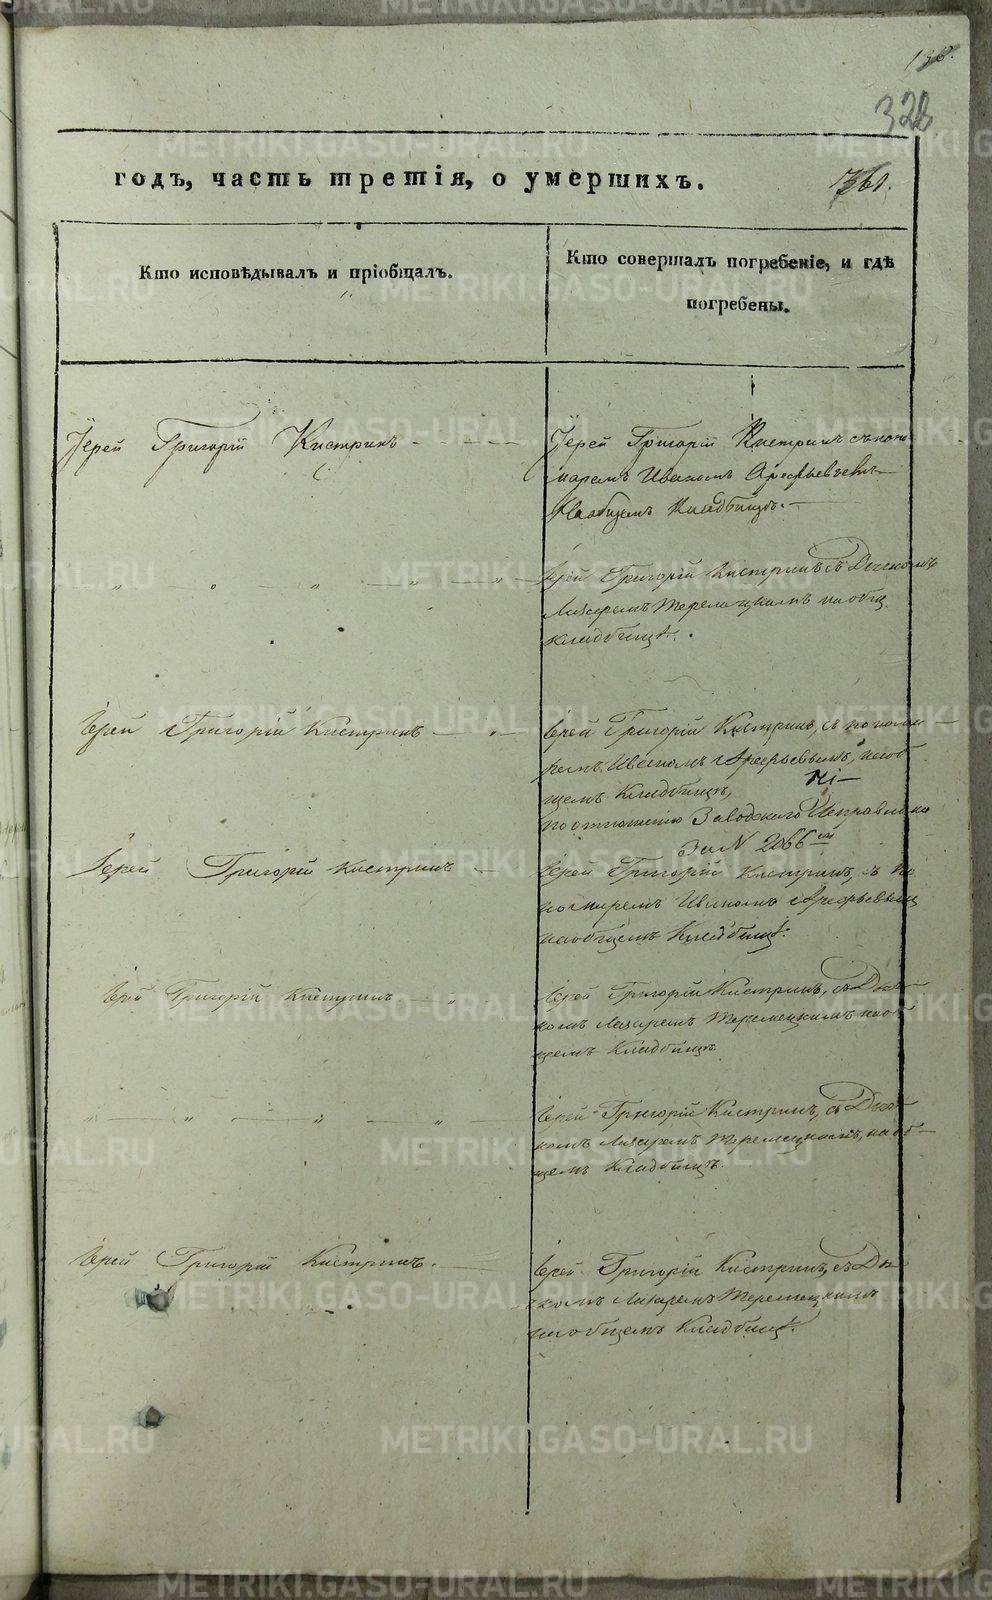 328
годъ, часть третія, о умершихъ.
361.
Кто исповѣдывалъ и пріобщалъ.
Кто совершалъ погребеніе, и гдѣ
погребены.
Іерей Григорій Кистринъ
Іерей Григорій Кистринъ съ поно
маремъ Иваномъ Арефьевымъ
На общемъ Кладбищѣ.
Іерей Григорій Кистринъ съ Дьячкомъ
Лазаремъ на общ.
Кладбищѣ.
Іерей Григорій Кистринъ
Іерей Григорій Кистринъ, съ понома
ремъ Иваномъ Арефьевымъ, на об
щемъ Кладбищѣ,
по отношенію Заводскаго Исправника
За N 2066
Іерей Григорій Кистринъ
Іерей Григорій Кистринъ, съ По
номаремъ Иваномъ Арефьевым
на общемъ Кладбищѣ.
Іерей Григорій Кистринъ
Іерей Григорій Кистринъ, съ Дьяч
комъ Лазаремъ на об
щемъ Кладбищѣ
Іерей Григорій Кистринъ, съ Дьяч
комъ Лазаремъ на об
щемъ Кладбищѣ.
Іерей Григорій Кистринъ.
Іерей Григорій Кистринъ, съ Дья
чкомъ Лазаремъ
на общемъ Кладбищѣ.
METRIKI.GASO-URAL.RU